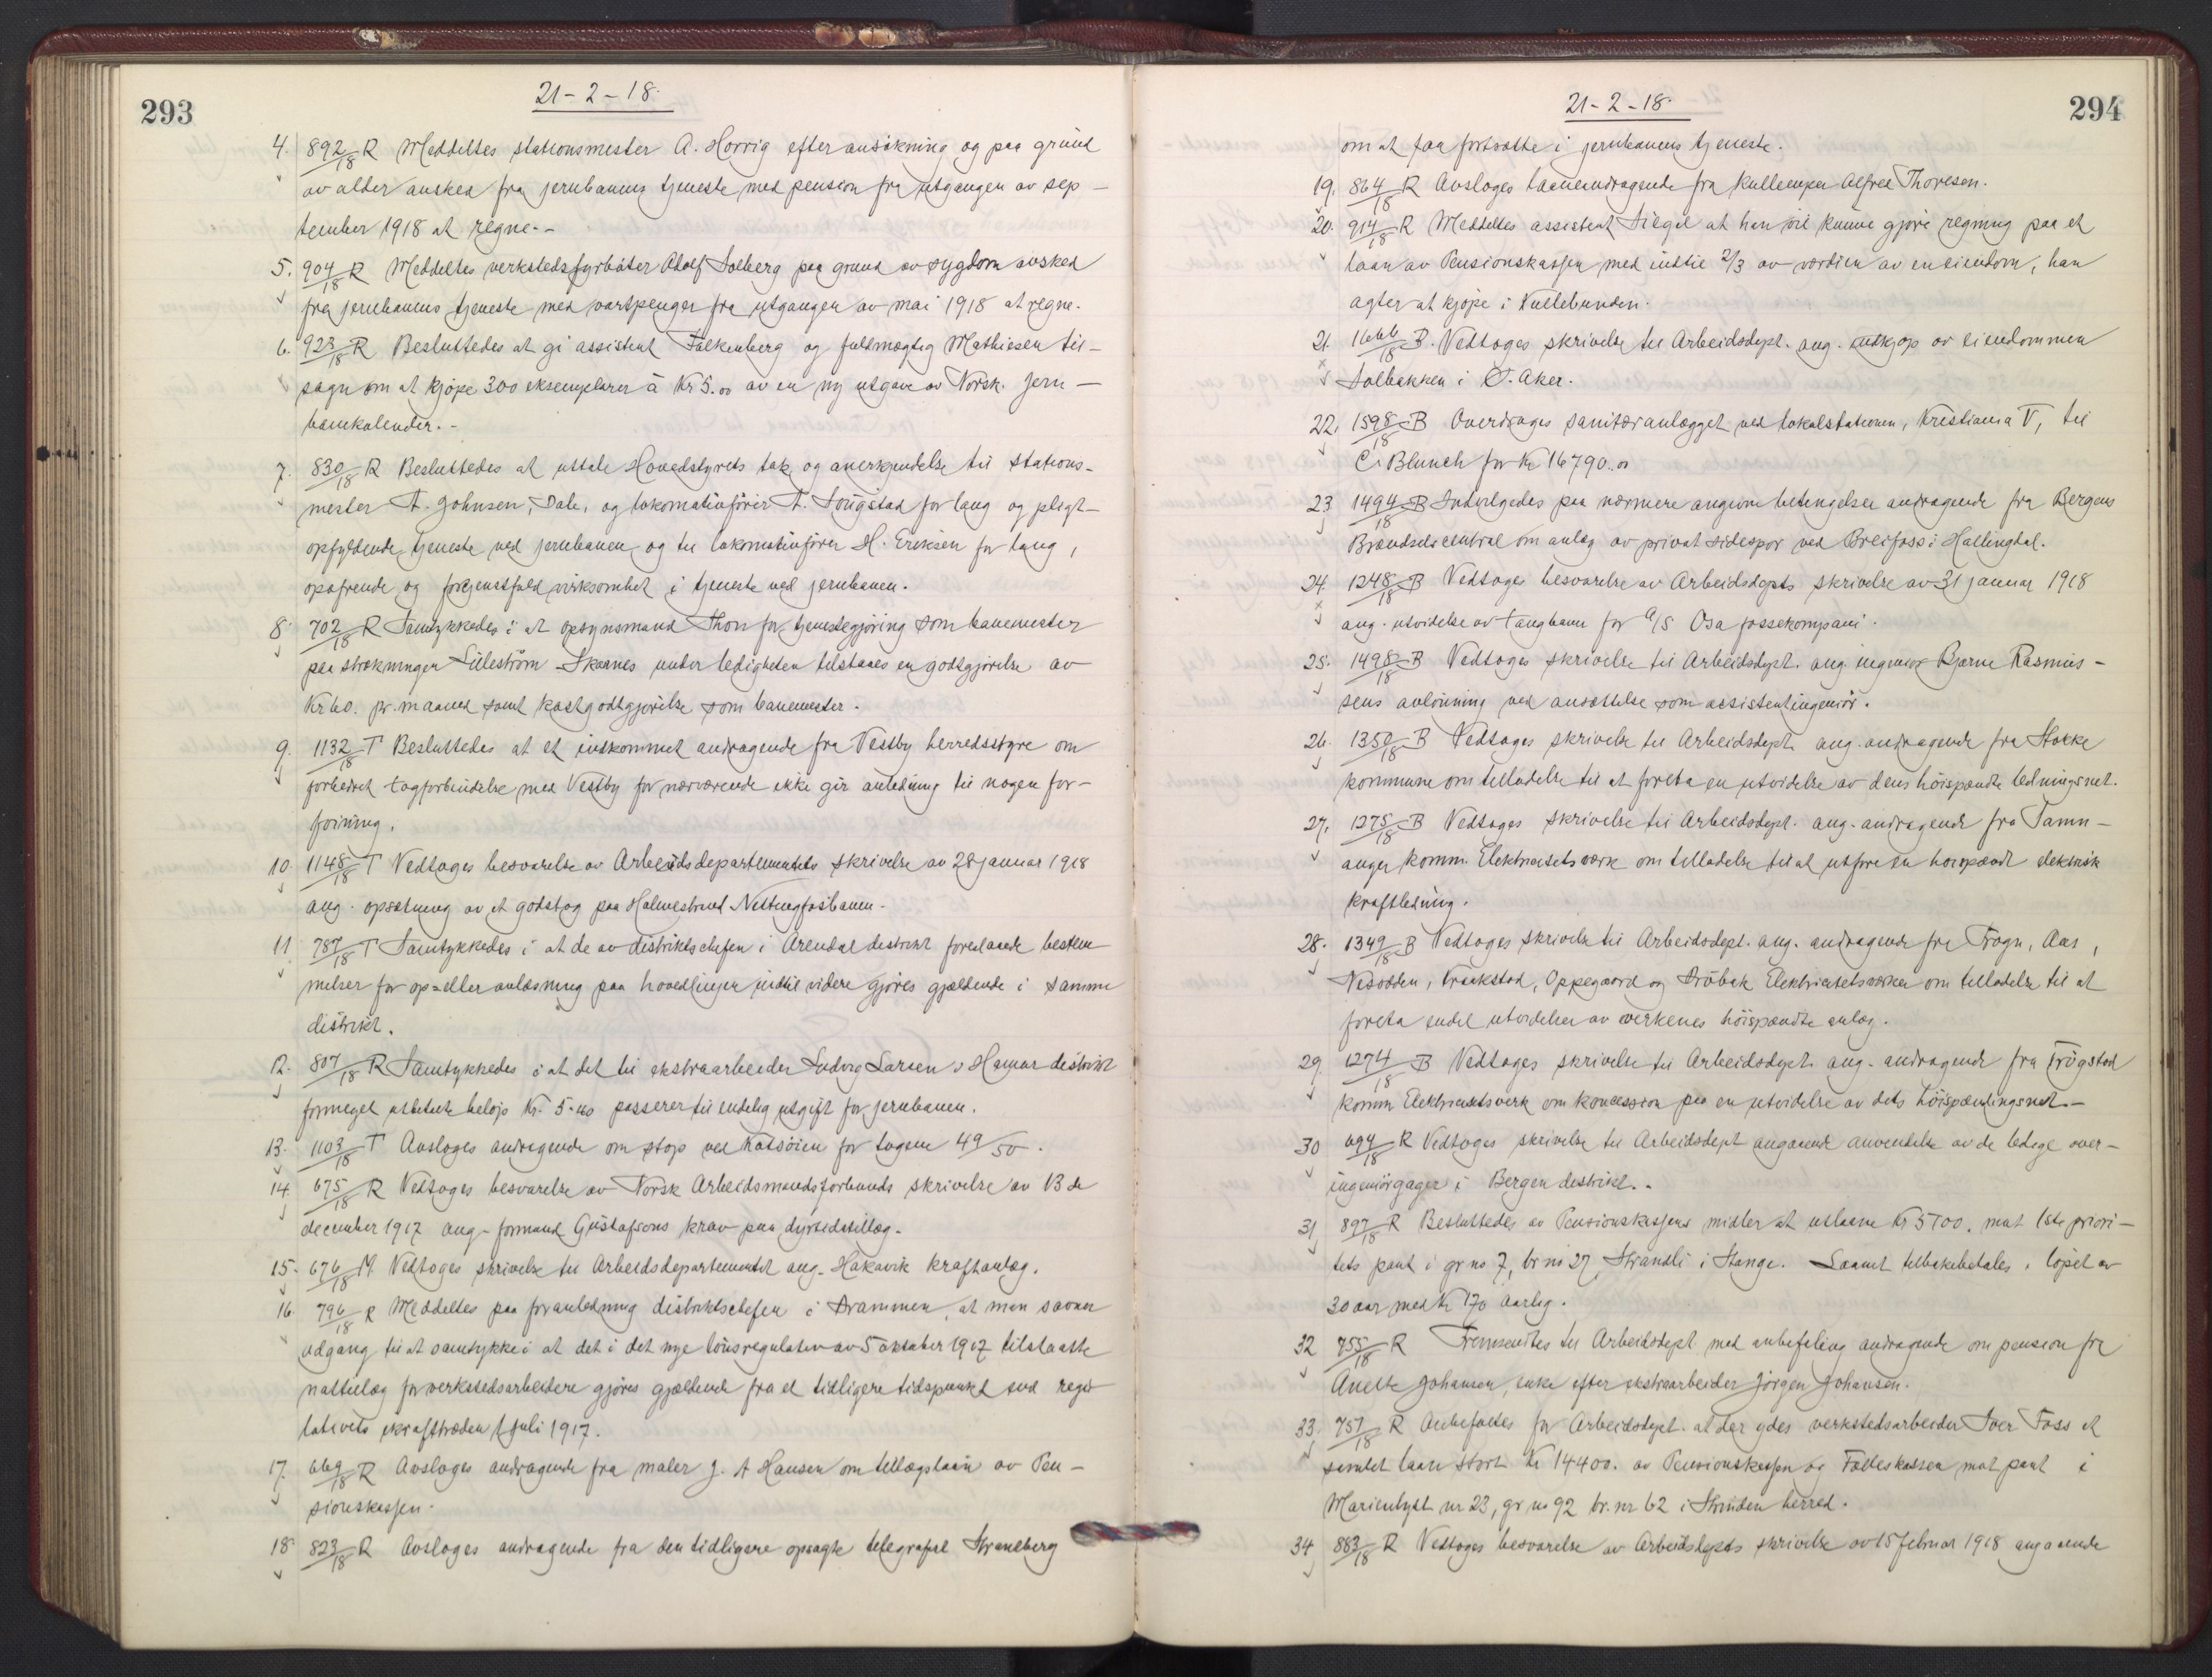 293
21-2-18.
4. 892/18 R Meddeltes stationsmester A. Horrig efter ansökning og paa grund
av alder avsked fra jernbanens tjeneste med pension fra utgangen av sep-
tember 1918 at regne.-
5. 904/18 R Meddeltes verkstedsfyrböter Adolf Solberg paa grund av sygdom avsked
fra jernbanens tjeneste med vartpenger fra utgangen av mai 1918 at regne.
6. 923/18 R Besluttedes at gi assistent Falkenberg og fuldmægtig Mathiesen til-
sagn om at kjöpe 300 eksemplarer à Kr 5.00 av en ny utgave av Norsk Jern-
banekalender.-
7. 830/18 R Besluttedes at uttale Hovedstyrets tak og anerkjendelse til stations-
mester A. Johnsen, Dale, og lokomotivförer A. Sougstad for lang og pligt-
opfyldende tjeneste ved jernbanen og til lokomotivförer H. Eriksen for lang,
opofrende og fortjenstfuld virksomhet i tjeneste ved jernbanen.
8. 702/18 R Samtykkedes i at opsynsmand Thon for tjenestegjöring som banemester
paa strækningen Lilleström - Skarnes under ledigheten tilstaaes en godtgjörelse av
Kr 60. pr. maaned samt kostgodtgjörelse som banemester.
9. 1132/18 T Besluttedes at et indkommet andragende fra Vestby herredsstyre om
forbedret togforbindelse med Vestby for nærværende ikke gir anledning til nogen for-
föining.
10. 1148/18 T Vedtoges besvarelse av Arbeidsdepartementets skrivelse av 28 januar 1918
ang. opsetning av et godstog paa Holmestrand Vittingfosbanen.
11 787/18 T Samtykkedes i at de av distriktschefen i Arendal distrikt foreslaaede bestem
melser for op- eller avlæsning paa hovedlinjen indtil videre gjöres gjældende i samme
distrikt.
12. 807/18 R Samtykkedes i at det til ekstraarbeider Ludvig Larsen i Hamar distrikt
formeget utbetalte belöp Kr. 5.60 passerer til endelig utgift for jernbanen.
13. 1103/18 T Avsloges andragende om stop ved Kolsöien for togene 49/50.
14. 675/18 R Vedtoges besvarelse av Norsk Arbeidsmandsforbunds skrivelse av 13de
december 1917 ang. formand Gustafsons krav paa dyrtidstillæg.
15. 676/18 M. Vedtoges skrivelse til Arbeidsdepartementet ang. Hakavik kraftanlæg.
16. 796/18 R Meddeltes paa foranledning distriktschefen i Drammen, at man savner
adgang til at samtykke i at det i det nye lönsregulativ av 5 oktober 1917 tilstaatte
nattillæg for verkstedsarbeidere gjöres gjældende fra et tidligere tidspunkt end regu
lativets ikrafttræden 1 juli 1917.
17. 669/18 R Avsloges andragende fra maler J. A Hansen om tillægslaan av Pen-
sionskassen.
18. 823/18 R Avsloges andragende fra den tidligere opsagte telegrafist Straneberg
294
21-2-18.
om at faa fortsætte i jernbanens tjeneste.
19. 864/18 R Avsloges laaneandragende fra kullemper Alfred Thoresen.
20. 914/18 R Meddeltes assistent Siegel at han vil kunne gjöre regning paa et
laan av Pensionskassen med indtil 2/3 av værdien av en eiendom, han
agter at kjöpe i Nattebunden.
21. 1666/18 B. Vedtoges skrivelse til Arbeidsdept. ang. indkjöp av eiendommen
Solbakken i Ö. Aker.
22. 1598/18 B Overdrages sanitæranlægget ved lokalstationen, Kristiania V, til
C. Blunch for Kr 16790.00
23 1494/18 B Indvilgedes paa nærmere angivne betingelser andragende fra Bergens
Brændselscentral om anlæg av privat sidespor ved Breifoss i Hallingdal.
24. 1248/18 B Vedtoges besvarelse av Arbeidsdepts skrivelse av 31 januar 1918
ang. utvidelse av taugbane for A/S Osa fossekompani.
25. 1498/18 B Vedtoges skrivelse til Arbeidsdept. ang. ingeniör Bjarne Rasmus-
sens avlönning ved ansættelse som assistentingeniör.
26. 1350/18 B Vedtoges skrivelse til Arbeidsdept. ang. andragende fra Stokke
kommune om tilladelse til at foreta en utvidelse av dens höispændte ledningsnet.
27. 1275/18 B Vedtoges skrivelse til Arbeidsdept. ang. andragende fra Samn-
anger komm. Elektricitetsverk om tilladelse til at utföre en höispændt elektrisk
kraftledning.
28. 1349/18 B Vedtoges skrivelse til Arbeidsdept. ang. andragende fra Frogn, Aas,
Nesodden, Kraakstad, Oppegaard og Dröbak Elektricitetsverker om tilladelse til at
foreta endel utvidelser av verkenes höispændte anlæg.
29 1274/18 B Vedtoges skrivelse til Arbeidsdept. ang. andragende fra Trögstad
komm Elektricitetsverk om koncession paa en utvidelse av dets höispændingsnet.-
30 694/18 R Vedtoges skrivelse til Arbeidsdept angaaende anvendelse av de ledige over-
ingeniörgager i Bergen distrikt.
31. 897/18 R Besluttedes av Pensionskassens midler at utlaane Kr 5700. mot 1ste priori-
tets pant i gr no 7, br no 27 Strandli i Stange. Laanet tilbakebetales i löpet av
30 aar med Kr 170 aarlig.
32 755/18 R Fremsendtes til Arbeidsdept med anbefaling andragende om pension fra
Anette Johansen, enke efter ekstraarbeider Jörgen Johansen.
33. 757/18 R Anbefaltes for Arbeidsdept. at der ydes verkstedsarbeider Iver Foss et
samlet laan stort Kr 14400. av Pensionskassen og Fælleskassen mot pant i
Marienlyst nr 23, gr no 92 br. nr 62 i Strinden herred.
34 883/18 R Vedtoges besvarelse av Arbeidsdepts skrivelse av 15 februar 1918 angaaende